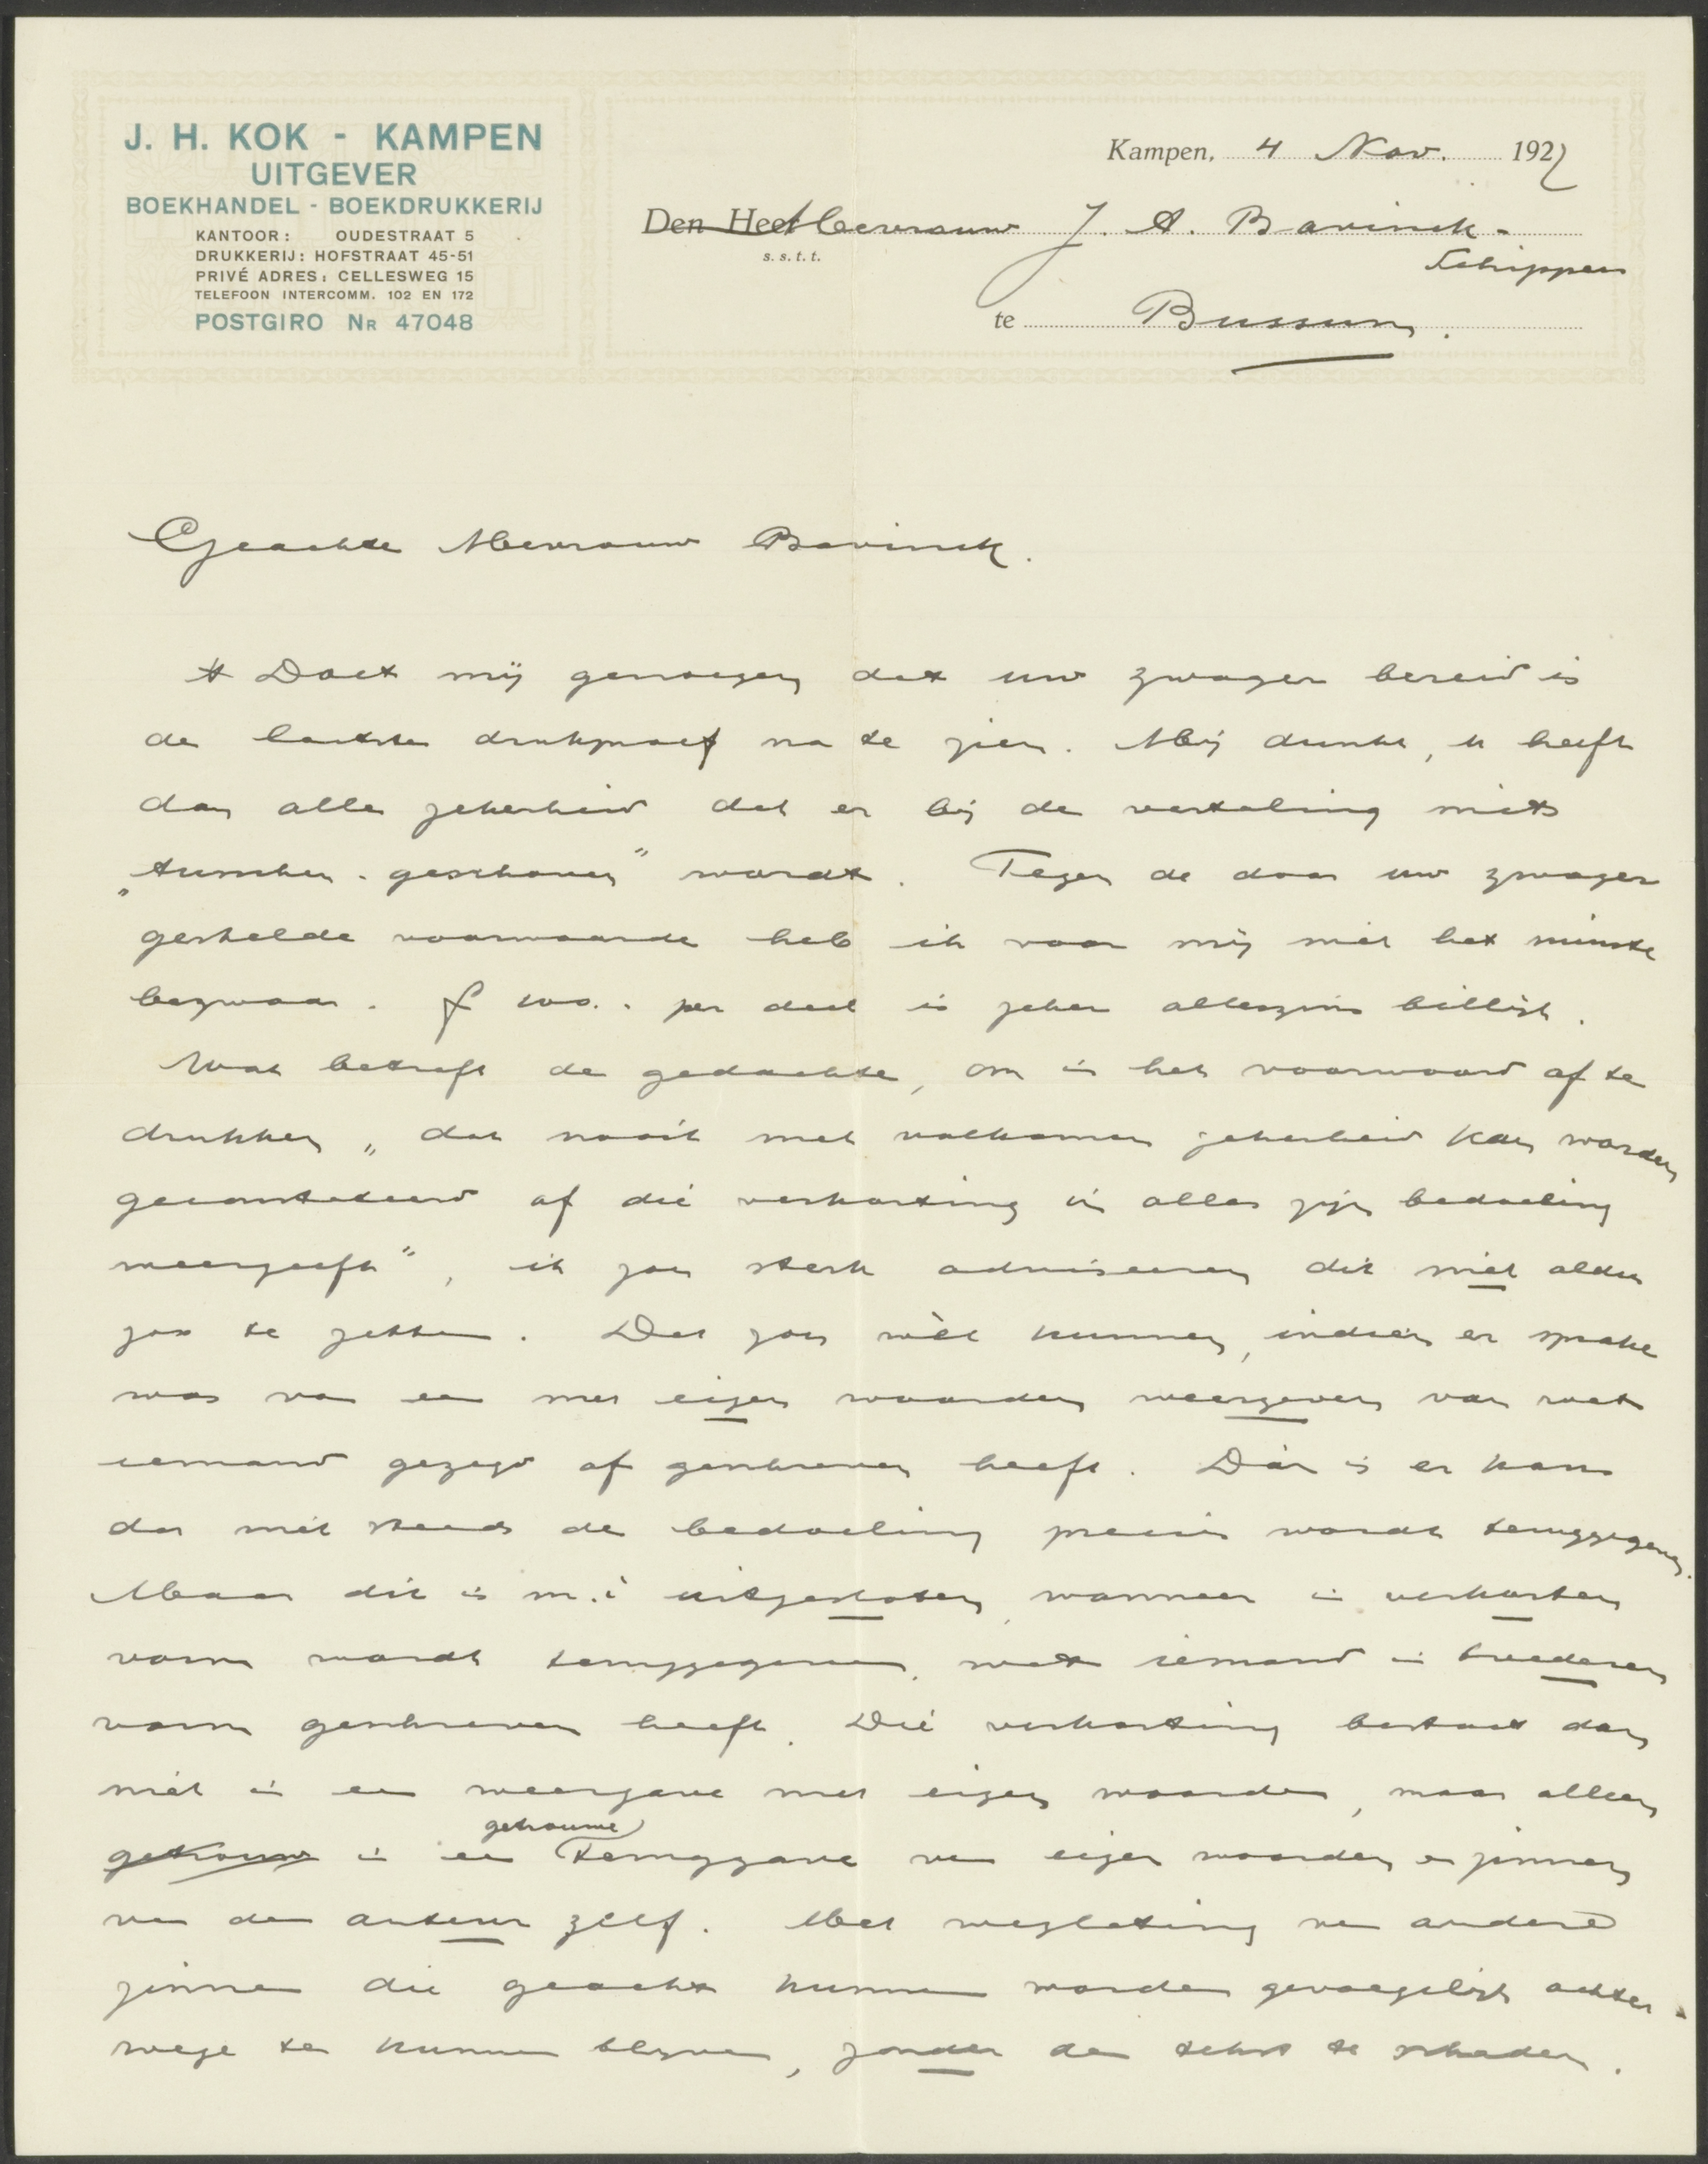 J. H. KOK - KAMPEN
UITGEVER
BOEKHANDEL - BOEKDRUKKERIJ
KANTOOR: OUDESTRAAT 5
DRUKKERIJ: HOFSTRAAT 45-51
PRIVÉ ADRES: CELLESWEG 15
TELEFOON INTERCOMM. 102 EN 172
POSTGIRO NR 47048
Kampen, 4 Nov. 192
Den Heer Mevrouw J. A. Bavinck-
s.s.t.t.
Schippers
te Bussum.
Geachte Mevrouw Bavinck.
't Doet mij genoegen dat uw zwager bereid is
de laatste drukproef na te zien. Mij dunkt, u heeft
dan alle zekerheid dat er bij de vertaling niets
„tusschen-geschoven" wordt. Tegen de door uw zwager
gestelde voorwaarde heb ik voor mij niet het minste
bezwaar. f 100.- per deel is zeker alleszins billijk.
Wat betreft de gedachte, om in het voorwoord af te
drukken „dat nooit met volkomen zekerheid kan worden
geconstateerd of die verkorting in alles zijn bedoeling
weergeeft", ik zou sterk adviseeren dit niet aldus
zoo te zetten. Dat zou wèl kunnen, indien er sprake
was van een met eigen woorden weergeven van wat
iemand gezegd of geschreven heeft. Dàn is er kans
dat niet steeds de bedoeling precies wordt teruggegeven.
Maar dit is m.i uitgesloten, wanneer in verkorten
vorm wordt teruggegeven, wat iemand in breederen
vorm geschreven heeft. Die verkorting bestaat dan
niet in een weergave met eigen woorden, maar alleen
getrouwe
getrouwe in een teruggave van eigen woorden en zinnen
van den auteur zelf. Met weglating van andere
zinnen die geacht kunnen worden gevoegelijk achter-
wege te kunnen blijven, zonder den tekst te schaden.